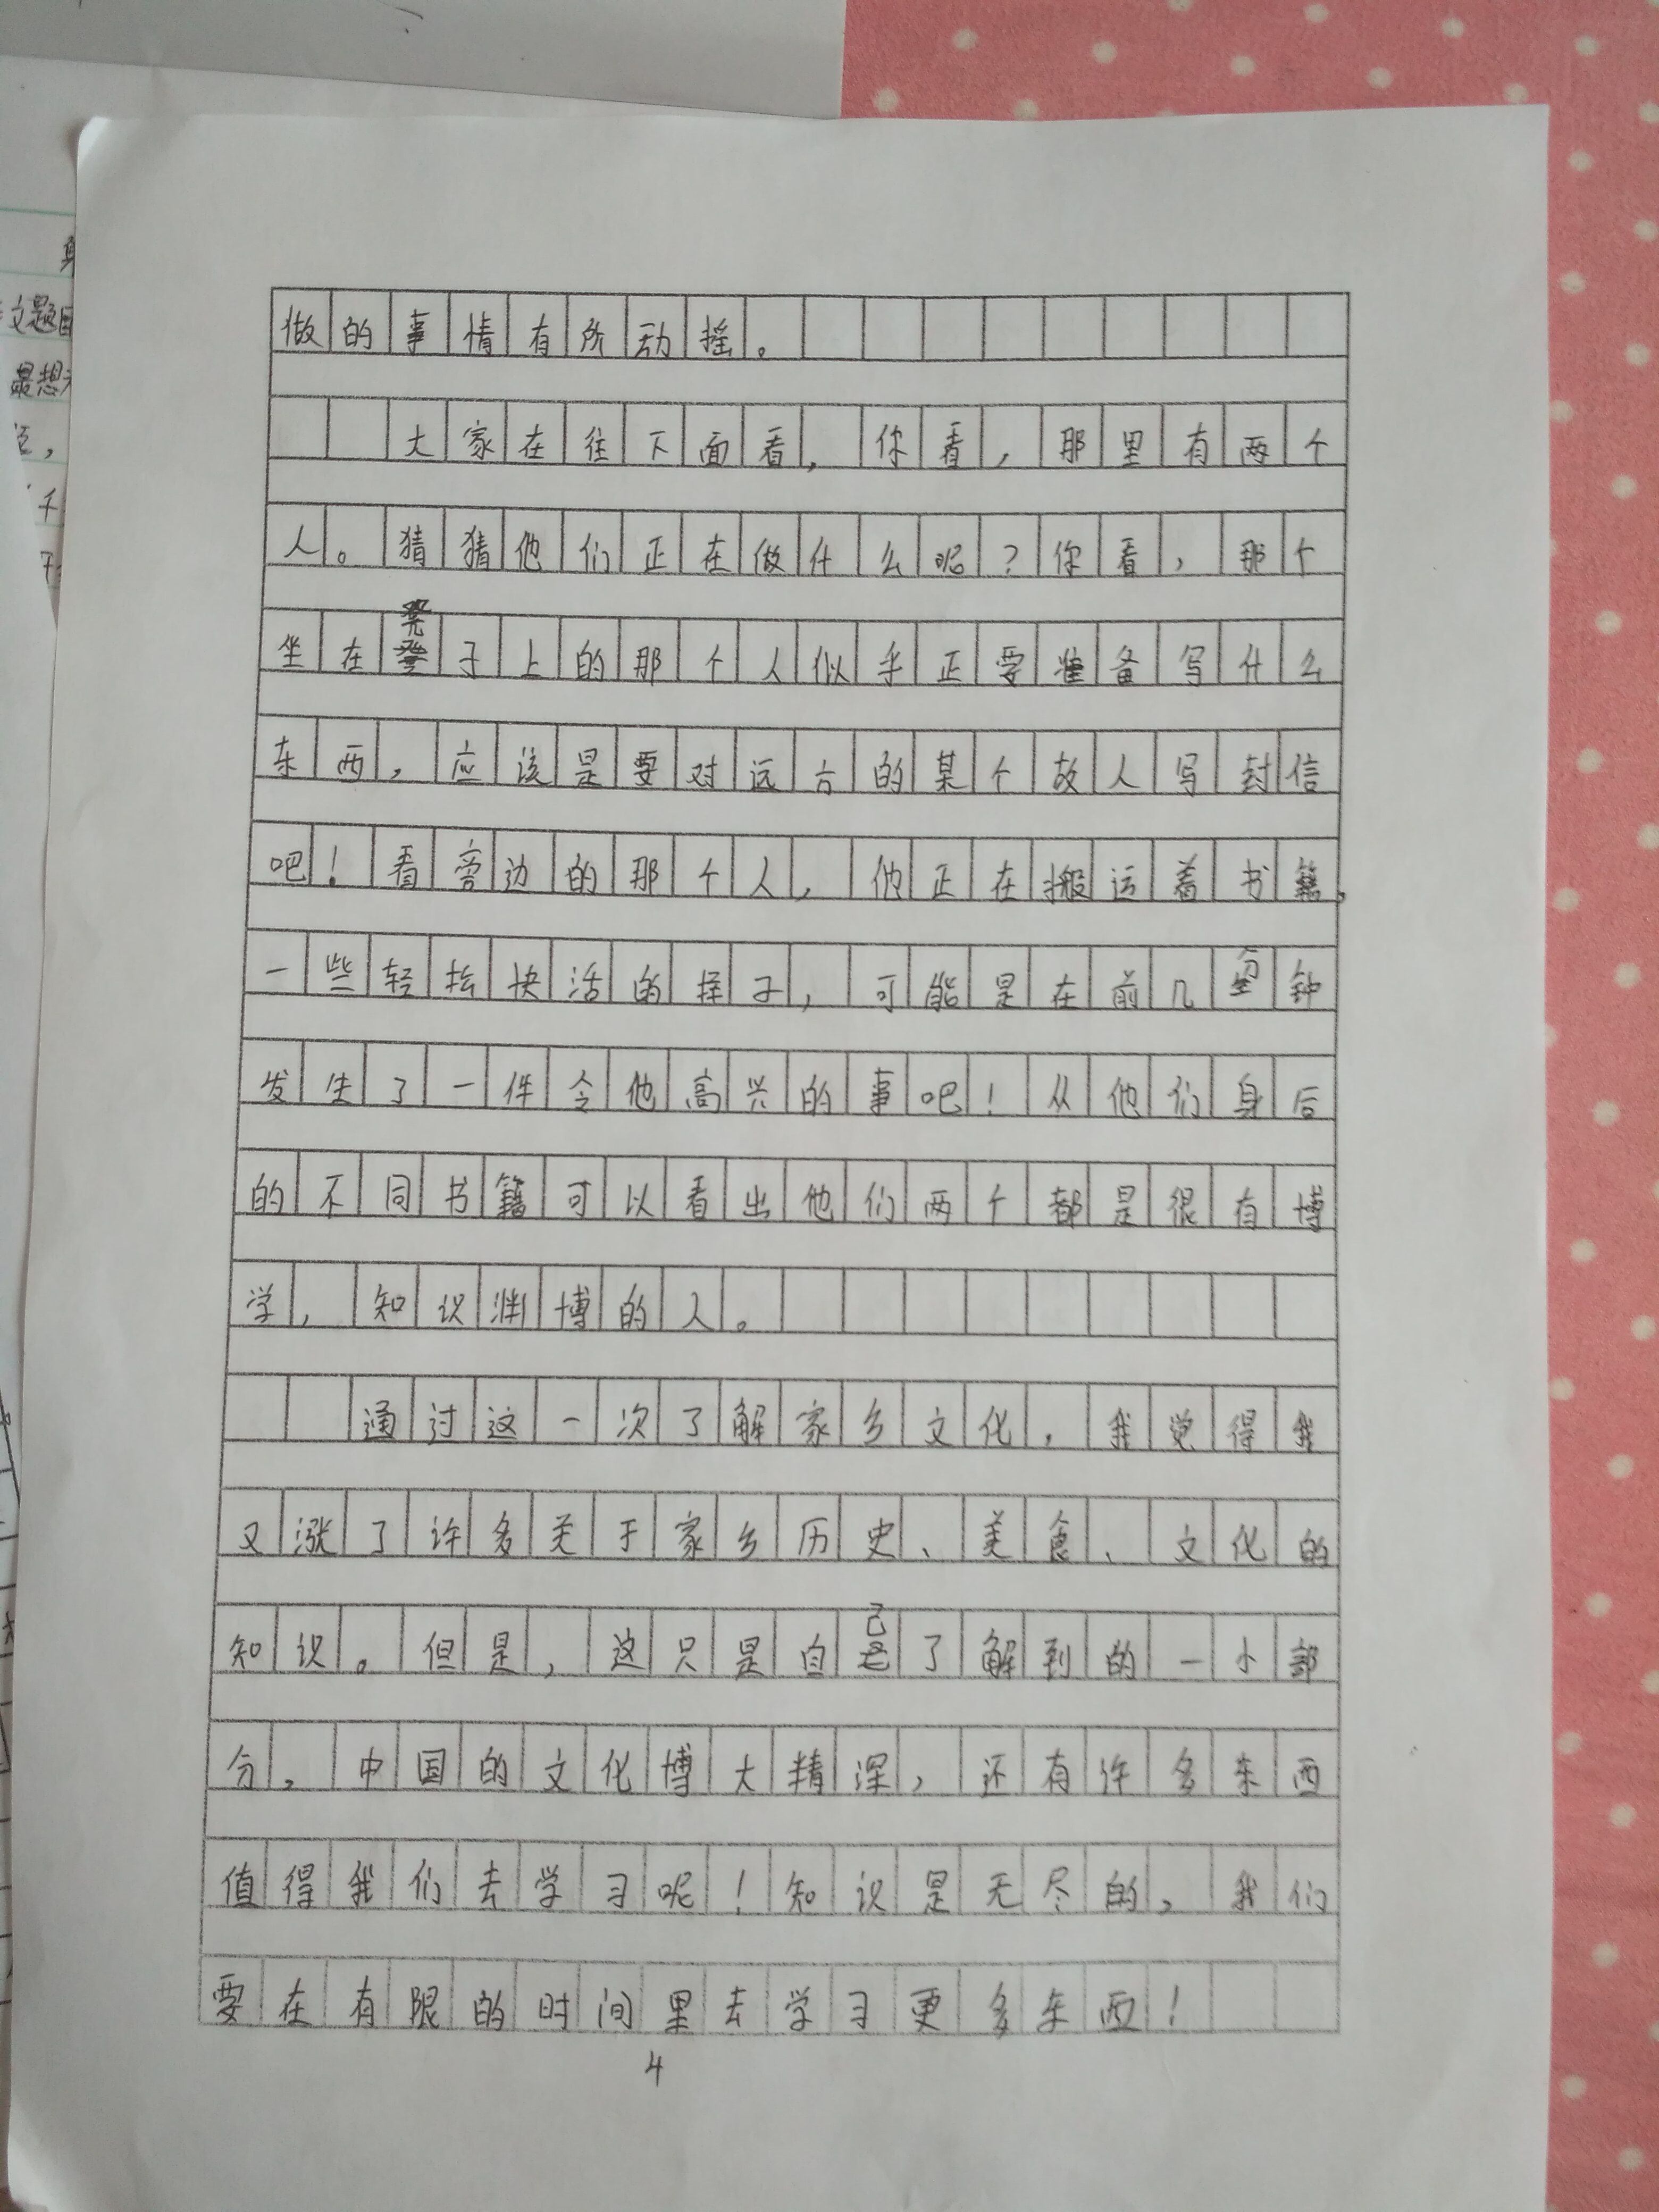 做的事情有所动摇。
大家在往下面看，你看，那里有两个
人。猜猜他们正在做什么呢？你看，那个
坐在凳子上的那个人似乎正要准备写什么
东西，应该是要对远方的某个故人写封信
吧！看旁边的那个人，他正在搬运着书籍，
一些轻松快活的样子，可能是在前几分钟
发生了一件令他高兴的事吧！从他们身后
的不同书籍可以看出他们两个都是很有博
学，知识渊博的人。
通过这一次了解家乡文化，我觉得我
又涨了许多关于家乡历史、美食、文化的
知识。但是，这只是自己了解到的一小部
分，中国的文化博大精深，还有许多东西
值得我们去学习呢！知识是无尽的，我们
要在有限的时间里去学习更多东西！
4
文题目
最想